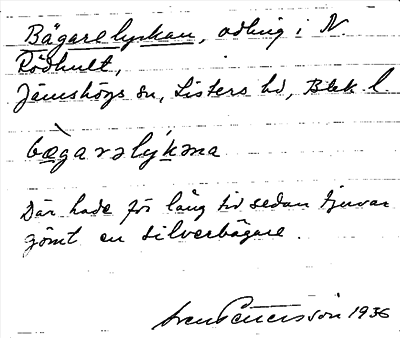 Bägarelyckan, odling i N.
Rödhult,
Jämshögs sn, Listers hd, Blek. l.
bægarəlykəna
Där hade för lång tid sedan tjuvar
gömt en silverbägare.
Sven Pettersson 1936